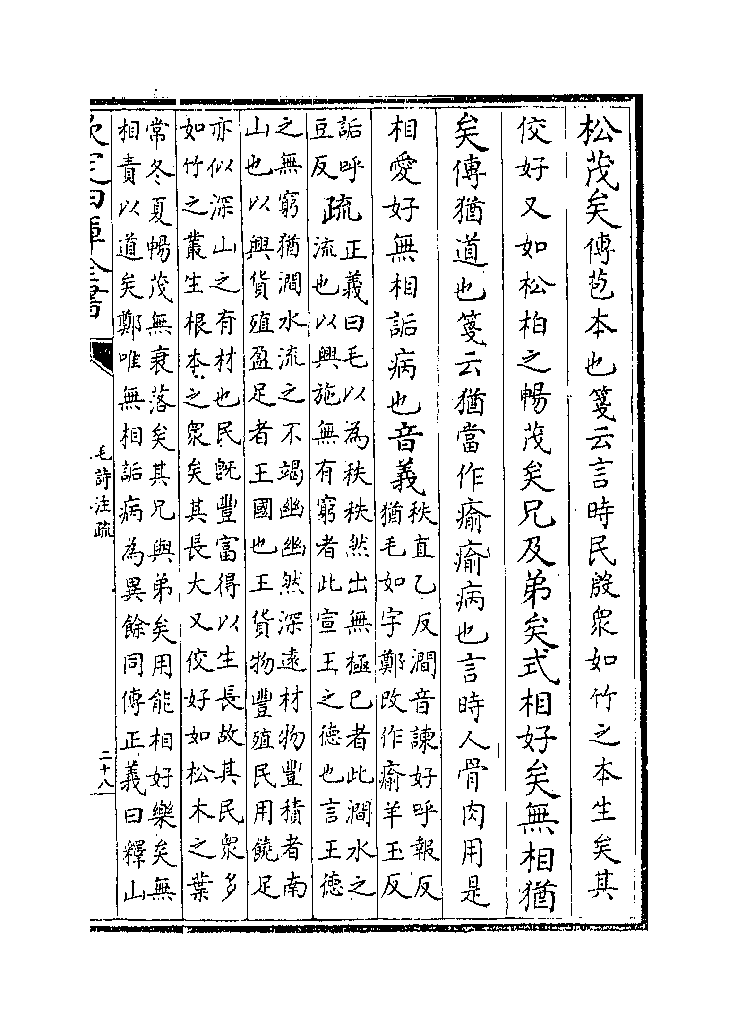 松茂矣傳苞本也箋云言時民殷衆如竹之本生矣其
佼好又如松柏之暢茂矣兄及弟矣式相好矣無相猶
矣傳猶道也箋云猶當作瘉瘉病也言時人骨肉用是
相愛好無相詬病也音義秩直乙反澗音諫好呼報反
猶毛如字鄭改作瘉羊玉反
詬呼
豆反
疏正義曰毛以為秩秩然出無極已者此澗水之
流也以興施無有窮者此宣王之德也言王德
之無窮猶澗水流之不竭幽幽然深遠材物豐積者南
山也以興貨殖盈足者王國也王貨物豐殖民用饒足
亦似深山之有材也民既豐富得以生長故其民衆多
如竹之叢生根本之衆矣其長大又佼好如松木之葉
常冬夏暢茂無衰落矣其兄與弟矣用能相好樂矣無
相責以道矣鄭唯無相詬病為異餘同傳正義曰釋山
欽定四庫全書
毛詩注疏
二十八